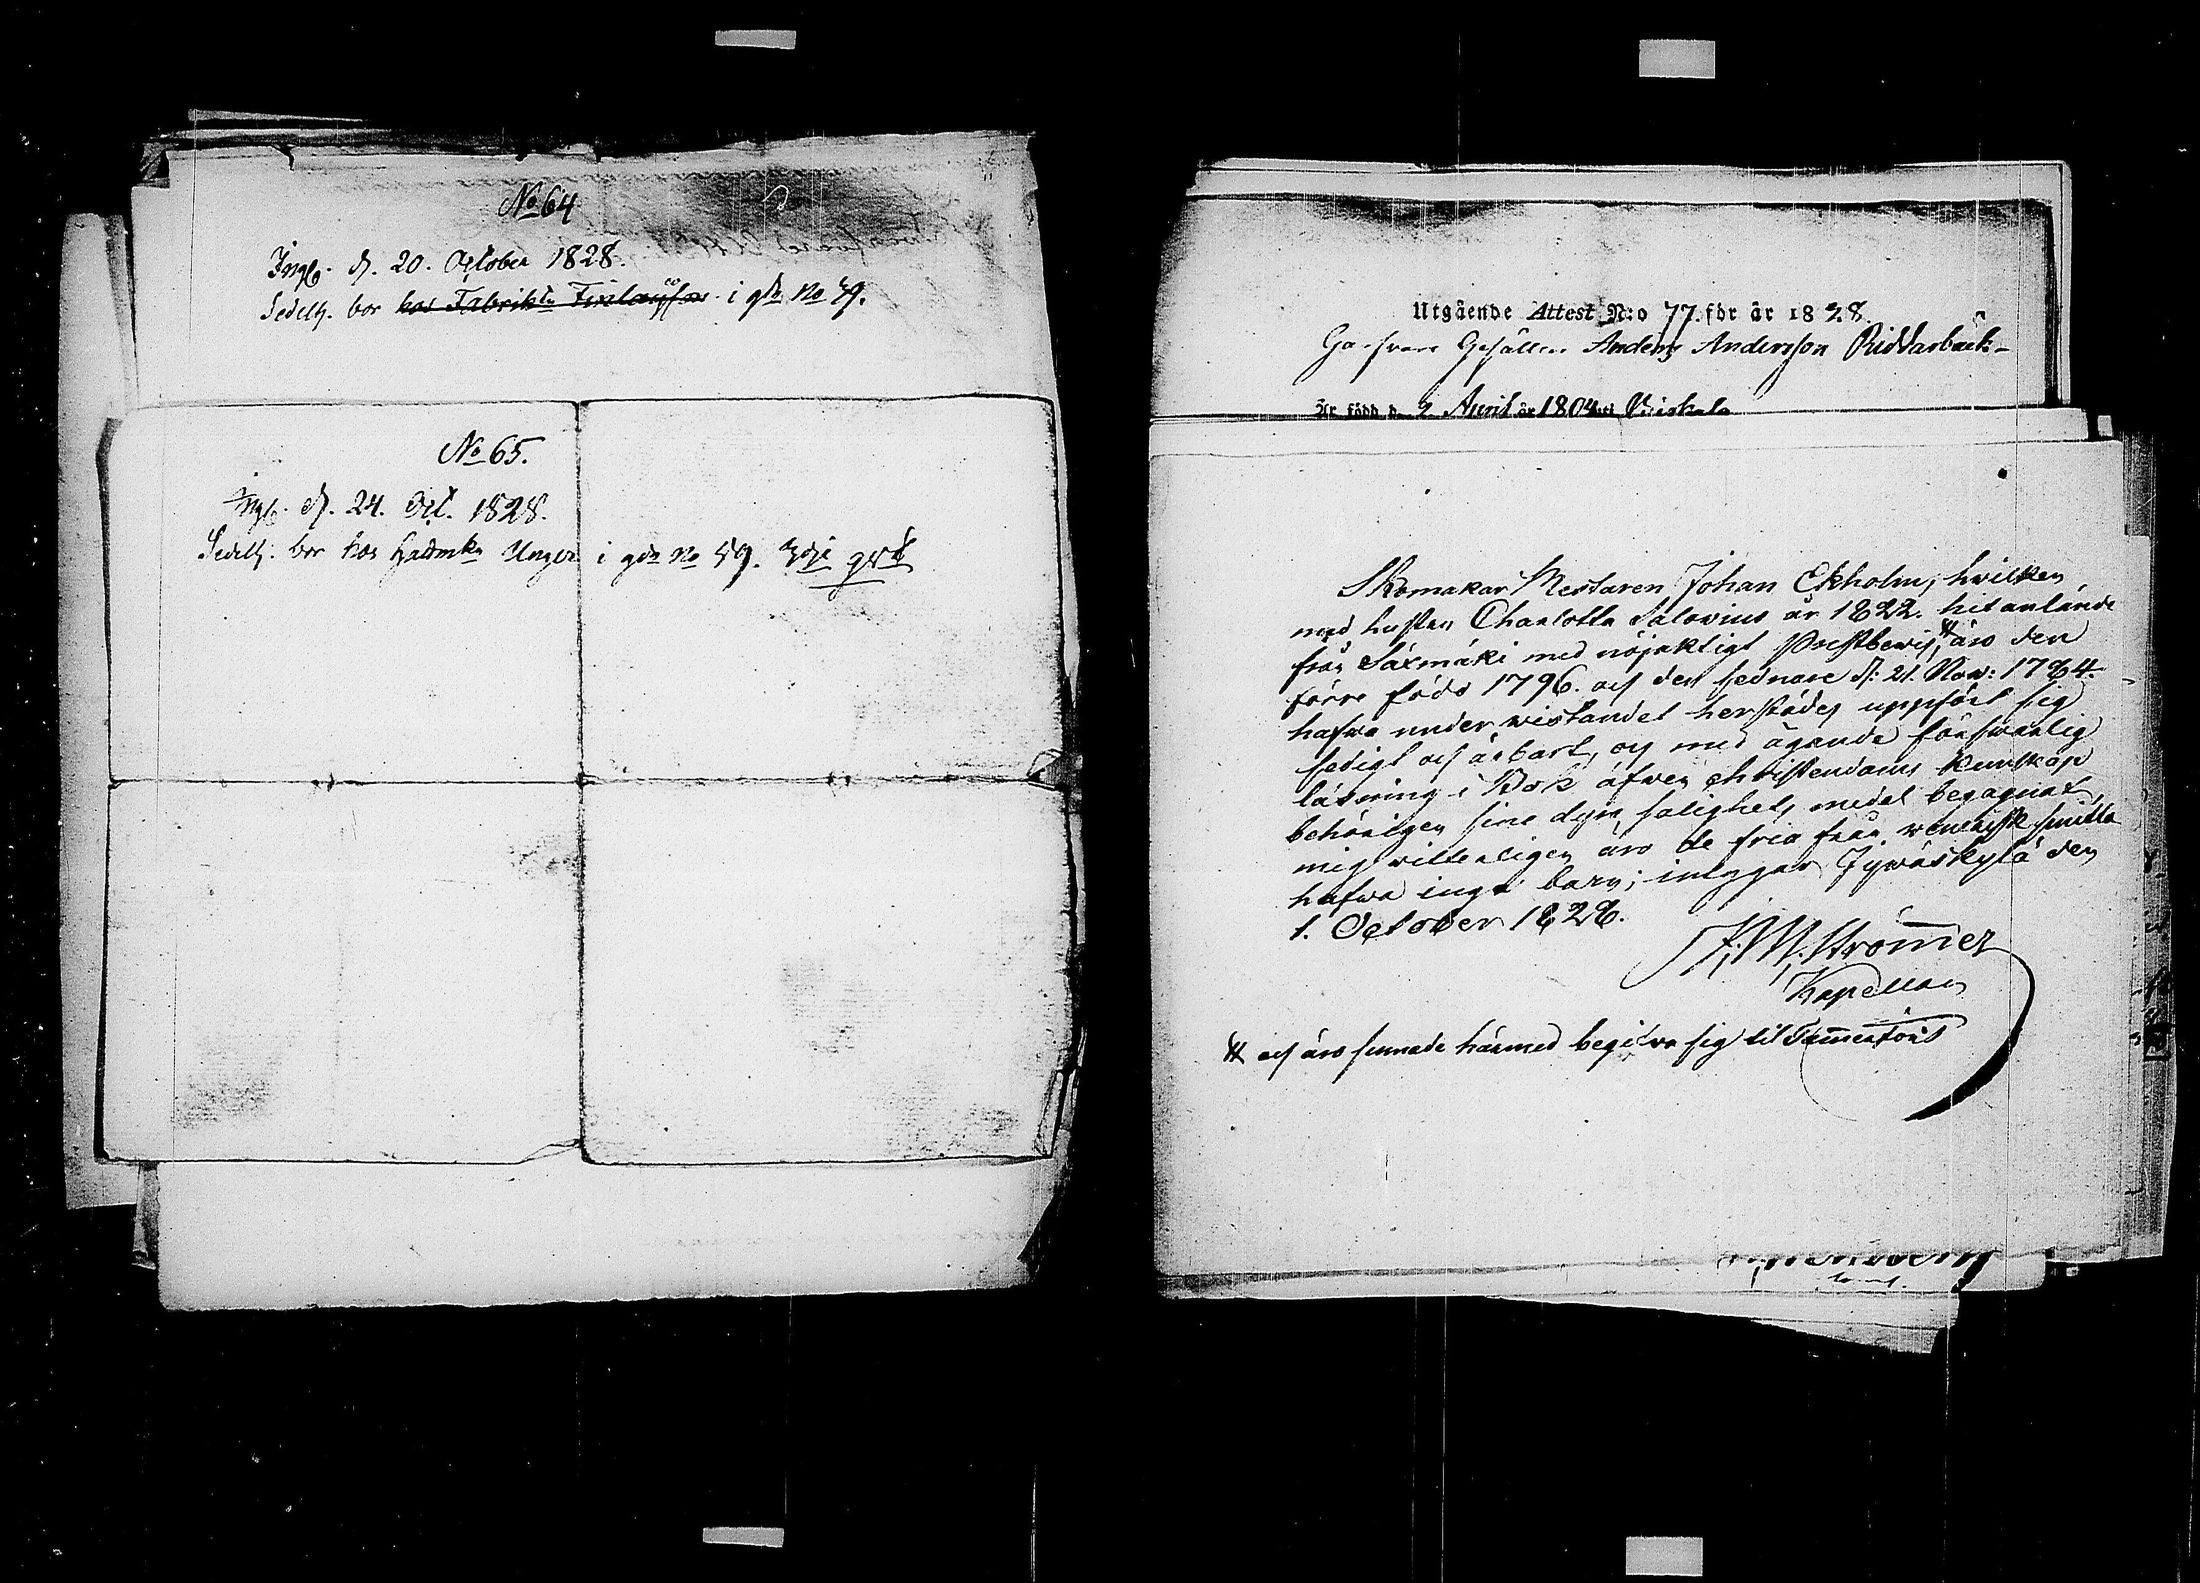 No 64
Ingb. d. 20. October 1828.
Sedelh. bor hos Fabrikn Finlaysson i gdn No 49.
No 65.
Ingb. d. 24. Oct. 1828.
Sedelh. bor hos Unger i gdn No 59. 3dje qrt
Utgående Attest N:o 77. för år 1828.
Garfvare Gesällen Anders Andersson Riddarbäck
Är född d. 2 April år 1804 uti
Skomakar Mestaren Johan Ekholm, hvilken
med hustru Charlotta Salovius år 1822. hit anlände
från Säxmäki med nöjaktigt Prestbevis, # äro den
förre född 1796. och den sednare d: 21. Nov: 1784.
hafva under vistandet herstädes uppfört sig
sedigt och ärbart, och med ägande försvarlig
läsning i Bok äfven christendoms kunskap
behörigen sine dyra salighets medel begagnat,
mig vitterligen äro de fria från venerisk smitta
hafva inga barn; intygar Jywäskylä den
1. October 1828.
J. M. Strömmer
Kapellan
# och äro sinnade härmed begifva sig til Tammerfors